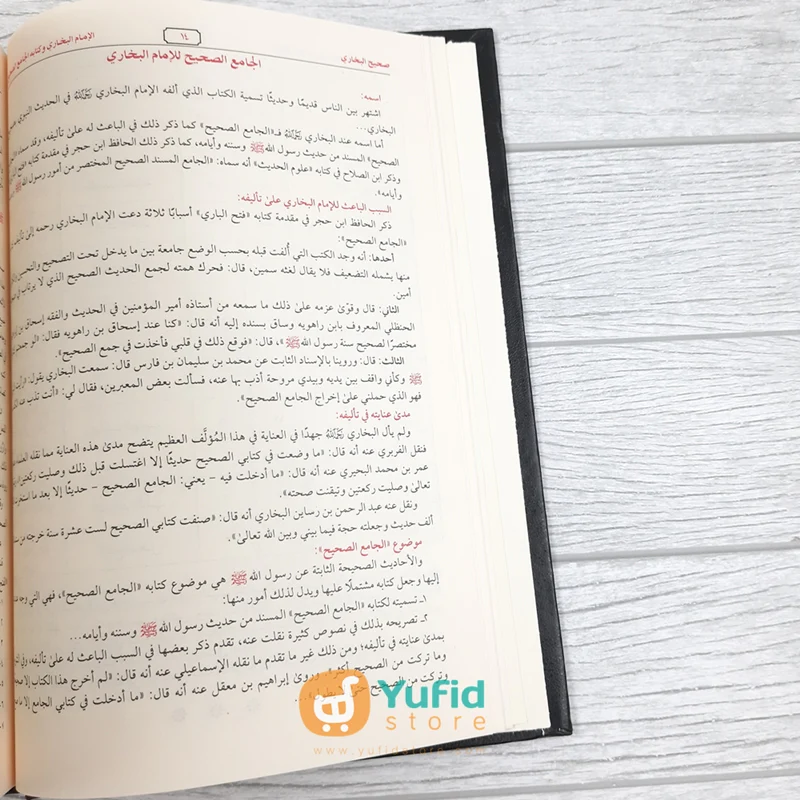 صحيح البخاري
١٤
الإمام البخاري وكتابه الجامع
الجامع الصحيح للإمام البخاري
اسمه:
اشتهر بين الناس قديمًا وحديثًا تسمية الكتاب الذي ألفه الإمام البخاري ﵀ في الحديث النبوي
البخاري...
أما اسمه عند البخاري ﵀ فـ«الجامع الصحيح» كما ذكر ذلك في الباعث له على تأليفه، وقد
الصحيح» المسند من حديث رسول الله ﷺ وسننه وأيامه، كما ذكر ذلك الحافظ ابن حجر في مقدمة كتابه «فتح
وذكر ابن الصلاح في كتابه «علوم الحديث» أنه سماه: «الجامع المسند الصحيح المختصر من أمور رسول الله ﷺ
وأيامه».
السبب الباعث للإمام البخاري على تأليفه:
ذكر الحافظ ابن حجر في مقدمة كتابه «فتح الباري» أسبابًا ثلاثة دعت الإمام البخاري رحمه إلى تأليف
«الجامع الصحيح»:
أحدها: أنه وجد الكتب التي ألفت قبله بحسب الوضع جامعة بين ما يدخل تحت التصحيح والتحسين
منها يشمله التضعيف فلا يقال لغثه سمين، قال: فحرك همته لجمع الحديث الصحيح الذي لا يرتاب
أمين.
الثاني: قال وقوّى عزمه على ذلك ما سمعه من أستاذه أمير المؤمنين في الحديث والفقه إسحاق بن
الحنظلي المعروف بابن راهويه وساق بسنده إليه أنه قال: «كنا عند إسحاق بن راهويه فقال: «لو جمعتم
مختصرًا لصحيح سنة رسول الله ﷺ»، قال: «فوقع ذلك في قلبي فأخذت في جمع الصحيح».
الثالث: قال: وروينا بالإسناد الثابت عن محمد بن سليمان بن فارس قال: سمعت البخاري يقول: «رأيت
ﷺ وكأني واقف بين يديه وبيدي مروحة أذب بها عنه، فسألت بعض المعبرين، فقال لي: «أنت تذب عنه
فهو الذي حملني على إخراج الجامع الصحيح».
مدى عنايته في تأليفه:
ولم يأل البخاري ﵀ جهدًا في العناية في هذا المُؤلَّف العظيم يتضح مدى هذه العناية مما نقله
فنقل الفربري عنه أنه قال: «ما وضعت في كتابي الصحيح حديثًا إلا اغتسلت قبل ذلك وصليت ركعتين
عمر بن محمد البحيري عنه أنه قال: «ما أدخلت فيه – يعني: الجامع الصحيح – حديثًا إلا بعد ما استخرت
تعالى وصليت ركعتين وتيقنت صحته».
ونقل عنه عبد الرحمن بن رساين البخاري أنه قال: «صنفت كتابي الصحيح لست عشرة سنة خرجته من
ألف حديث وجعلته حجة فيما بيني وبين الله تعالى».
موضوع «الجامع الصحيح»:
والأحاديث الصحيحة الثابتة عن رسول الله ﷺ هي موضوع كتابه «الجامع الصحيح»، فهي التي وجه
إليها وجعل كتابه مشتملًا عليها ويدل لذلك أمور منها:
١ـ تسميته لكتابه «الجامع الصحيح» المسند من حديث رسول الله ﷺ وسننه وأيامه...
٢ـ تصريحه بذلك في نصوص كثيرة نقلت عنه، تقدم ذكر بعضها في السبب الباعث له على تأليفه، وفي
بمدى عنايته في تأليفه؛ ومن ذلك غير ما تقدم ما نقله الإسماعيلي عنه أنه قال: «لم أخرج هذا الكتاب إلا
وما تركت من الصحيح أكثر». وروى إبراهيم بن معقل عنه أنه قال: «ما أدخلت في كتابي الجامع إلا ما
وتركت من الصحيح حتى
Yufid
store
www.yufidstore.com